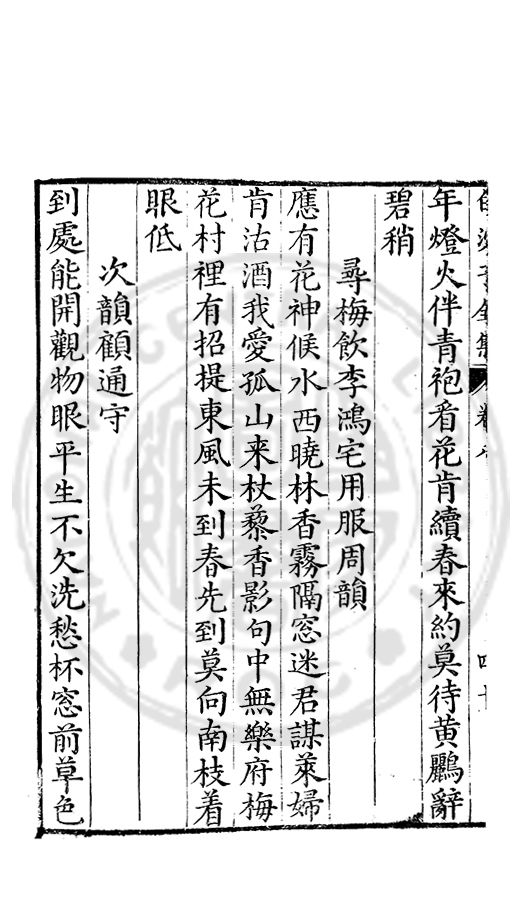 年燈火伴青袍看花肯續春來約莫待黃鸝辭
碧稍
尋梅飲李鴻宅用服周韻
應有花神候水西曉林香霧隔窓迷君謀萊婦
肯沽酒我愛孤山来杖藜香影句中無樂府梅
花村裡有招提東風未到春先到莫向南枝着
眼低
次韻顧通守
到處能開觀物眼平生不欠洗愁杯窓前草色